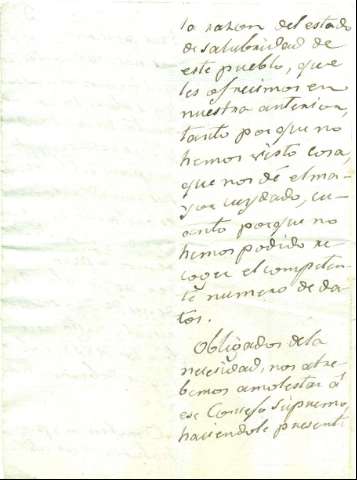 la razon del estado
de salubridad de
este pueblo, que
les ofrecimos en
nuestra anterior,
tanto por que no
hemos visto cosa,
que nos dé el ma-
yor cuydado, cu-
anto porque no
hemos podido re-
coger el competen-
te numero de da-
tos.
Obligados de la
necesidad, nos atre-
bemos a molestar á
ese Consejo Supremo,
haciendole present